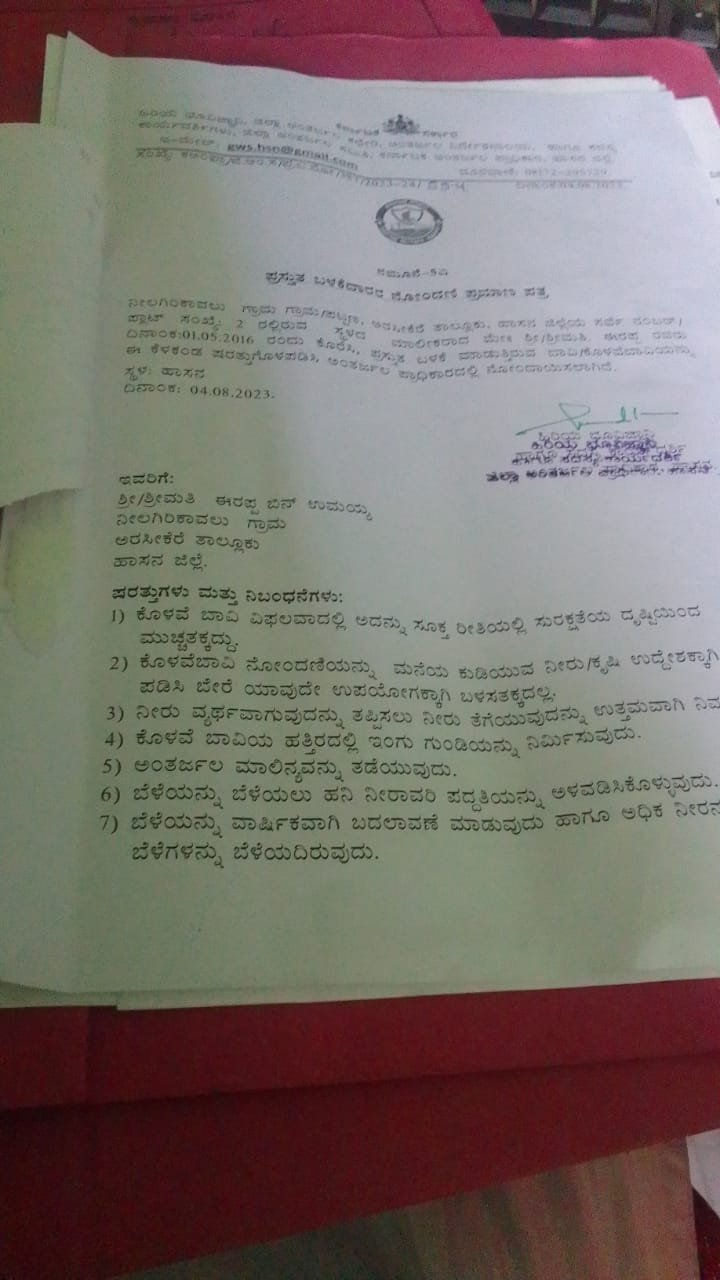 ಕರ್ನಾಟಕ ಸರ್ಕಾರ
ಹಿರಿಯ ಭೂವಿಜ್ಞಾನಿ, ಜಿಲ್ಲಾ ಅಂತರ್ಜಲ ಕಛೇರಿ, ಅಂತರ್ಜಲ ನಿರ್ದೇಶನಾಲಯ,
ಕಾರ್ಯದರ್ಶಿಗಳು, ಜಿಲ್ಲಾ ಅಂತರ್ಜಲ ಸಮಿತಿ, ಕರ್ನಾಟಕ ಅಂತರ್ಜಲ ಪ್ರಾಧಿಕಾರ, ಹಾಸನ ಜಿಲ್ಲೆ.
ಇ-ಮೇಲ್: gws.hsn@gmail.com
ದಿನಾಂಕ:04.08.2023.
ನಮೂನೆ-5ಎ
ಪ್ರಸ್ತುತ ಬಳಕೆದಾರರ ನೋಂದಣಿ ಪ್ರಮಾಣ ಪತ್ರ
ನೀಲಗಿರಿಕಾವಲು ಗ್ರಾಮ ಗ್ರಾಮ/ಪಟ್ಟಣ, ಅರಸೀಕೆರೆ ತಾಲ್ಲೂಕು, ಹಾಸನ ಜಿಲ್ಲೆಯ ಸರ್ವೆ ನಂಬರ್/
ಪ್ಲಾಟ್ ಸಂಖ್ಯೆ: 2 ರಲ್ಲಿರುವ ಸ್ಥಳದ ಮಾಲೀಕರಾದ ಮೇಃ ಶ್ರೀ/ಶ್ರೀಮತಿ. ಈರಪ್ಪ ರವರು
ದಿನಾಂಕ:01.05.2016 ರಂದು ಕೊರೆಸಿ, ಪ್ರಸ್ತುತ ಬಳಕೆ ಮಾಡುತ್ತಿರುವ ಬಾವಿ/ಕೊಳವೆಬಾವಿಯನ್ನು
ಈ ಕೆಳಕಂಡ ಷರತ್ತುಗೊಳಪಡಿಸಿ, ಅಂತರ್ಜಲ ಪ್ರಾಧಿಕಾರದಲ್ಲಿ ನೋಂದಾಯಿಸಲಾಗಿದೆ.
ಸ್ಥಳ: ಹಾಸನ
ದಿನಾಂಕ: 04.08.2023.
ಹಿರಿಯ ಭೂವಿಜ್ಞಾನಿ
ಇವರಿಗೆ:
ಶ್ರೀ/ಶ್ರೀಮತಿ ಈರಪ್ಪ ಬಿನ್ ಉಮಯ್ಯ
ನೀಲಗಿರಿಕಾವಲು ಗ್ರಾಮ
ಅರಸೀಕೆರೆ ತಾಲ್ಲೂಕು
ಹಾಸನ ಜಿಲ್ಲೆ.
ಷರತ್ತುಗಳು ಮತ್ತು ನಿಬಂಧನೆಗಳು:
1) ಕೊಳವೆ ಬಾವಿ ವಿಫಲವಾದಲ್ಲಿ ಅದನ್ನು ಸೂಕ್ತ ರೀತಿಯಲ್ಲಿ ಸುರಕ್ಷತೆಯ ದೃಷ್ಟಿಯಿಂದ
ಮುಚ್ಚತಕ್ಕದ್ದು.
2) ಕೊಳವೆಬಾವಿ ನೋಂದಣಿಯನ್ನು ಮನೆಯ ಕುಡಿಯುವ ನೀರು/ಕೃಷಿ ಉದ್ದೇಶಕ್ಕಾಗಿ
ಪಡಿಸಿ ಬೇರೆ ಯಾವುದೇ ಉಪಯೋಗಕ್ಕಾಗಿ ಬಳಸತಕ್ಕದಲ್ಲ.
3) ನೀರು ವ್ಯರ್ಥವಾಗುವುದನ್ನು ತಪ್ಪಿಸಲು ನೀರು ತೆಗೆಯುವುದನ್ನು ಉತ್ತಮವಾಗಿ
4) ಕೊಳವೆ ಬಾವಿಯ ಹತ್ತಿರದಲ್ಲಿ ಇಂಗು ಗುಂಡಿಯನ್ನು ನಿರ್ಮಿಸುವುದು.
5) ಅಂತರ್ಜಲ ಮಾಲಿನ್ಯವನ್ನು ತಡೆಯುವುದು.
6) ಬೆಳೆಯನ್ನು ಬೆಳೆಯಲು ಹನಿ ನೀರಾವರಿ ಪದ್ದತಿಯನ್ನು ಅಳವಡಿಸಿಕೊಳ್ಳುವುದು.
7) ಬೆಳೆಯನ್ನು ವಾರ್ಷಿಕವಾಗಿ ಬದಲಾವಣೆ ಮಾಡುವುದು ಹಾಗೂ ಅಧಿಕ
ಬೆಳೆಗಳನ್ನು ಬೆಳೆಯದಿರುವುದು.